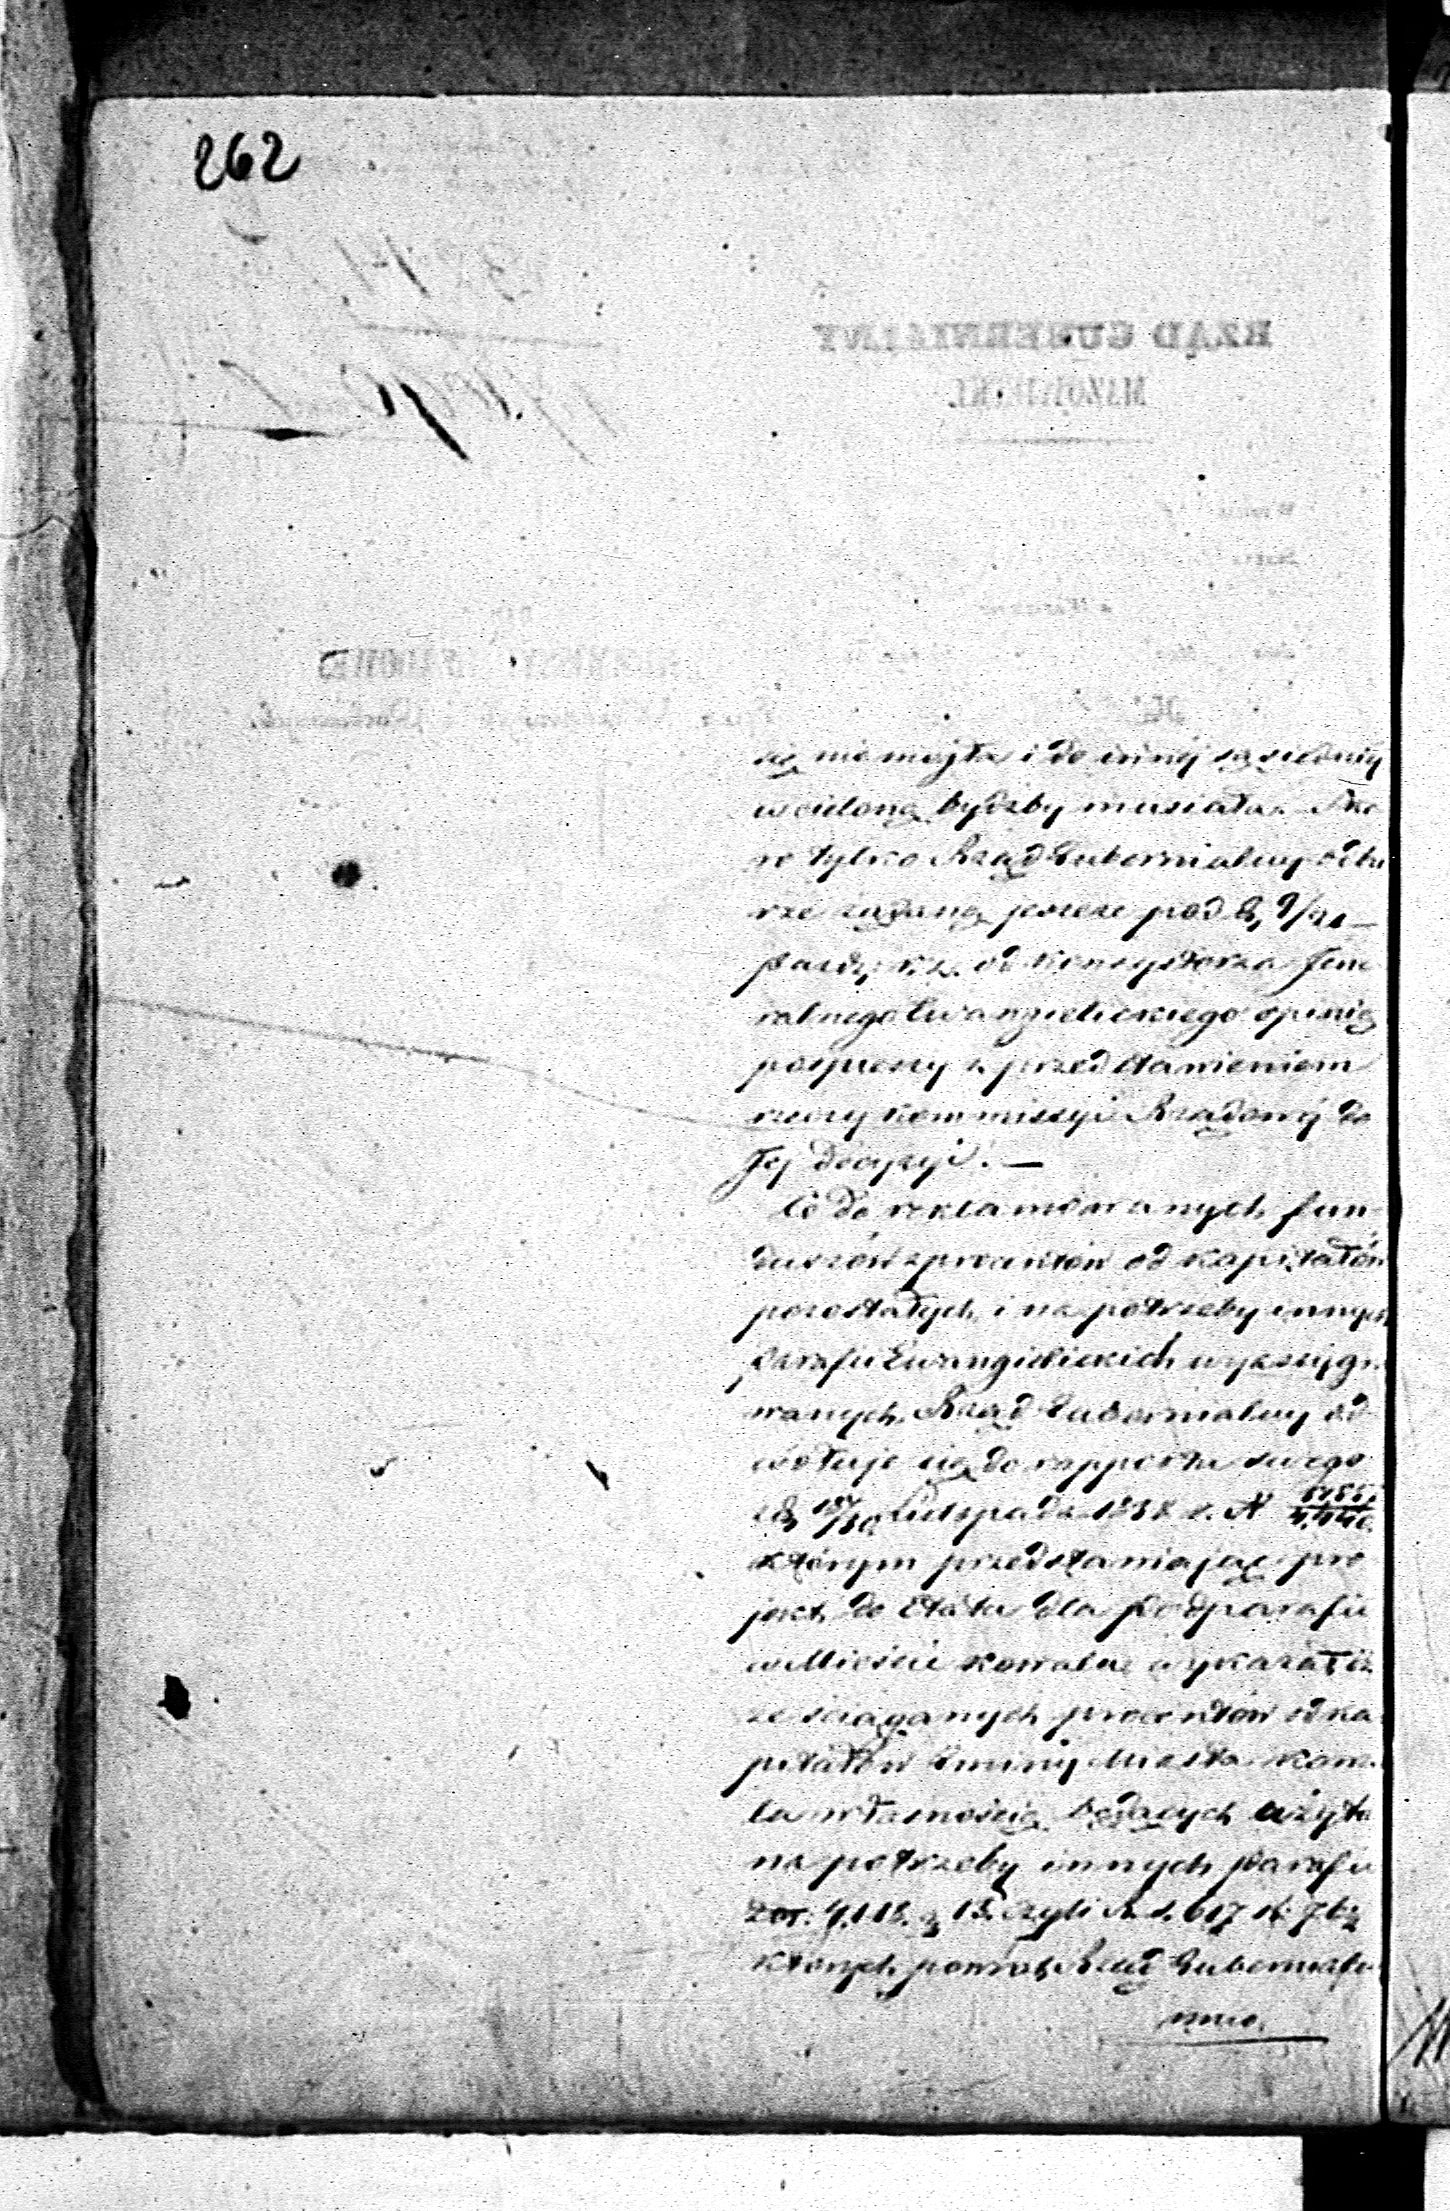 262
się nie mogła i do innéj sąsiedniéj
wcieloną bydźby musiała. Sko
ro tylko Rząd Gubernialny odbie
rze żądaną jeszcze pod d.
Paźdz. r. z. od Konsystorza Jene
ralnego Ewangielickiego opinię
pospieszy z przedstawieniem
rzeczy Kommissyi Rządowéj do
Jej decyzyi. —
Co do reklamowanych fun-
duszów z procentów od kapitałów
pozostałych i na potrzeby innych
Parafii Ewangielickich wyassygno
wanych, Rząd Gubernialny od
wołuje się do rapportu swego
z d. 18/30 Listopada 1838 r. N
którym przedstawiając pro
jekt do Etatu dla Podparafii
w Mieście Kowalu wykazał iż
ze ściąganych procentów od ka
pitałów Gminy Miasta Kowa
la własnością będących użyto
na potrzeby innych Parafii
Złot. 4,118. g 15. czyli R. s. 617 k. 76½
których powrot Rząd Gubernialny
mnie.